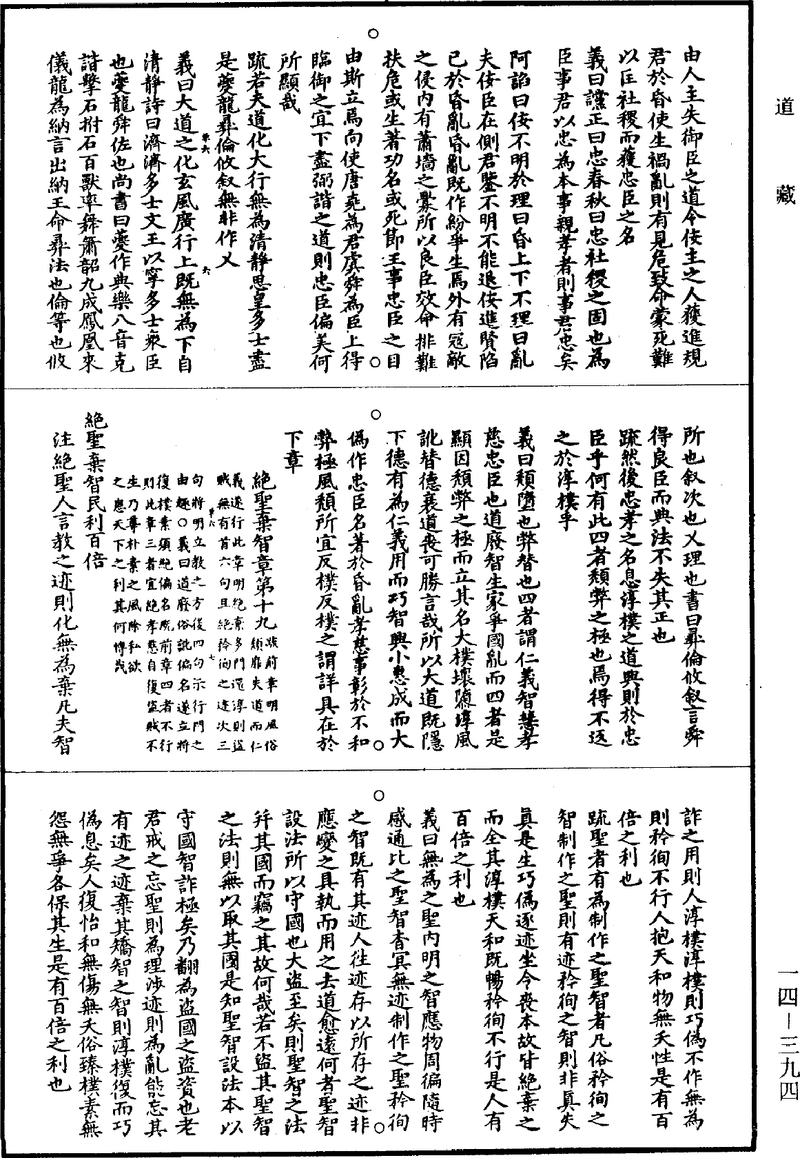 道藏
由人主失御臣之道令佞主之人獲進規
君於昏使生禍亂則有見危致命蒙死難
以匡社稷而獲忠臣之名
義曰讜正曰忠春秋曰忠社稷之固也為
臣事君以忠為本事親孝者則事君忠矣
阿諂曰佞不明於理曰昏上下不理曰亂
夫佞臣在側君鑒不明不能退佞進賢陷
已於昏亂昏亂既作紛爭生焉外有寇敵
之侵內有蕭墻之釁所以良臣效命排難
扶危或生著功名或死節王事忠臣之目
由斯立焉向使唐堯為君虞舜為臣上得
臨御之宜下盡弼諧之道則忠臣偏美何
所顯哉
疏若夫道化大行無為清靜思皇多士盡
是夔龍彝倫攸敘無非作乂
義曰大道之化玄風廣行上既無為下自
清靜詩曰濟濟多士文王以寧多士眾臣
也夔龍舜佐也尚書曰夔作典樂八音克
諧擊石拊石百獸率舞簫韶九成鳳凰來
儀龍為納言出納王命彝法也倫等也攸
所也敘次也乂理也書曰彝倫攸敘言舜
得良臣而典法不失其正也
疏然後忠孝之名息淳樸之道興則於忠
臣乎何有此四者頹弊之極也焉得不返
之於淳樸乎
義曰頹墮也弊替也四者謂仁義智慧孝
慈忠臣也道廢智生家爭國亂而四者是
顯因頹弊之極而立其名大樸壞隳淳風
訛替德襄道喪可勝言哉所以大道既隱
下德有為仁義用而巧智興小慧成而大
偽作忠臣名著於昏亂孝慈事彰於不和
弊極風頹所宜反樸反樸之謂詳具在於
下章
絕聖棄智章第十九
疏前章明風俗
頹靡失道而仁
義遂行此章明絕棄多門還淳則盜
賊無有首六句且絕矜徇之迹次三
句將明立教之方後四句示行門之
由趣〇義曰道廢俗訛偏名遂立將
復樸素須絕偏名故前章四者不行
則此章三者宜絕孝慈自復盜賊不
生乃尊朴素之風除私欲
之應天下之利其何博哉
絕聖棄智民利百倍
注絕聖人言教之迹則化無為棄凡夫智
詐之用則人淳樸淳樸則巧偽不作無為
則矜徇不行人抱天和物無夭性是有百
倍之利也
疏聖者有為制作之聖智者凡俗矜徇之
智制作之聖則有迹矜徇之智則非真失
真是生巧偽逐迹坐令喪本故皆絕棄之
而全其淳樸天和既暢矜徇不行是人有
百倍之利也
義曰無為之聖內明之智應物周徧隨時
感通比之聖智杳冥無迹制作之聖矜徇
之智既有其迹人往迹存以所存之迹非
應變之具執而用之去道愈遠何者聖智
設法所以守國也大盜至矣則聖智之法
并其國而竊之其故何哉若不盜其聖智
之法則無以取其國是知聖智設法本以
守國智詐極矣乃翻為盜國之盜資也老
君戒之忘聖則為理涉迹則為亂能忘其
有迹之迹棄其矯智之智則淳樸復而巧
偽息矣人復怡和無傷無夭俗臻樸素無
怨無爭各保其生是有百倍之利也
一四—三九四